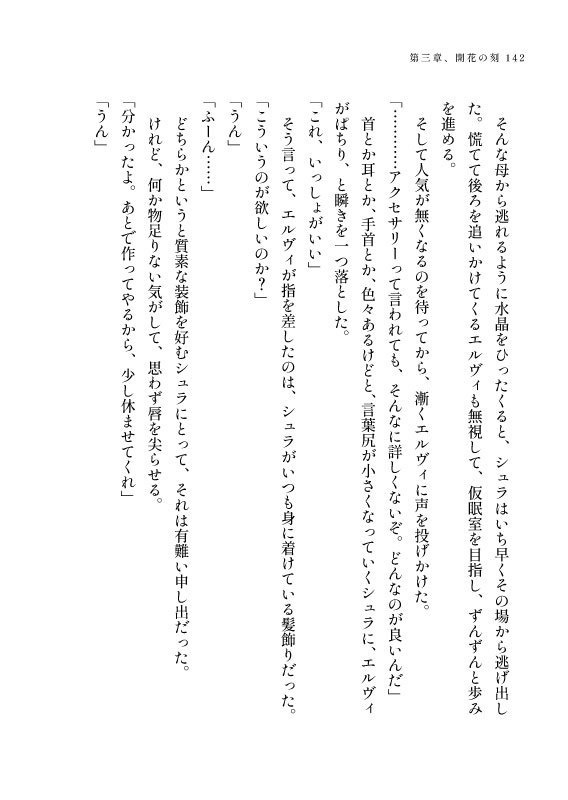 第三章、開花の刻 142
そんな母から逃れるように水晶をひったくると、シュラはいち早くその場から逃げ出し
た。慌てて後ろを追いかけてくるエルヴィも無視して、仮眠室を目指し、ずんずんと歩み
を進める。
そして人気が無くなるのを待ってから、漸くエルヴィに声を投げかけた。
「…………アクセサリーって言われても、そんなに詳しくないぞ。どんなのが良いんだ」
首とか耳とか、手首とか、色々あるけどと、言葉尻が小さくなっていくシュラに、エルヴィ
がぱちり、と瞬きを一つ落とした。
「これ、いっしょがいい」
そう言って、エルヴィが指を差したのは、シュラがいつも身に着けている髪飾りだった。
「こういうのが欲しいのか？」
「うん」
「ふーん……」
どちらかというと質素な装飾を好むシュラにとって、それは有難い申し出だった。
けれど、何か物足りない気がして、思わず唇を尖らせる。
「分かったよ。あとで作ってやるから、少し休ませてくれ」
「うん」